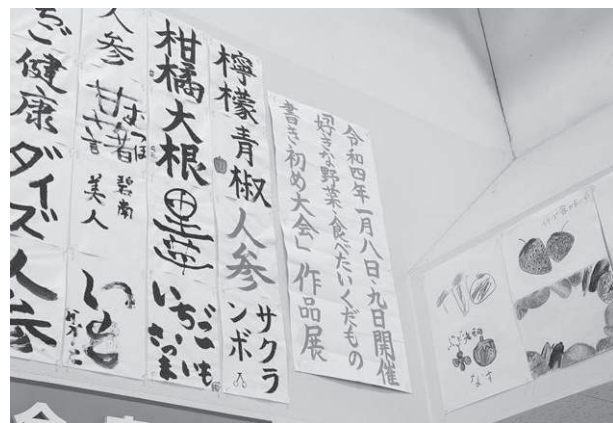 令和四年一月八日・九日開催
好きな野菜・食べたいくだもの
書き初め大会」作品展
檸檬
青椒
人参
サクラ
ンボ
柑橘
大根
いちご
さつま
いも
人参
碧南
美人
いも
ちご
健康
ダイズ
人参
なす